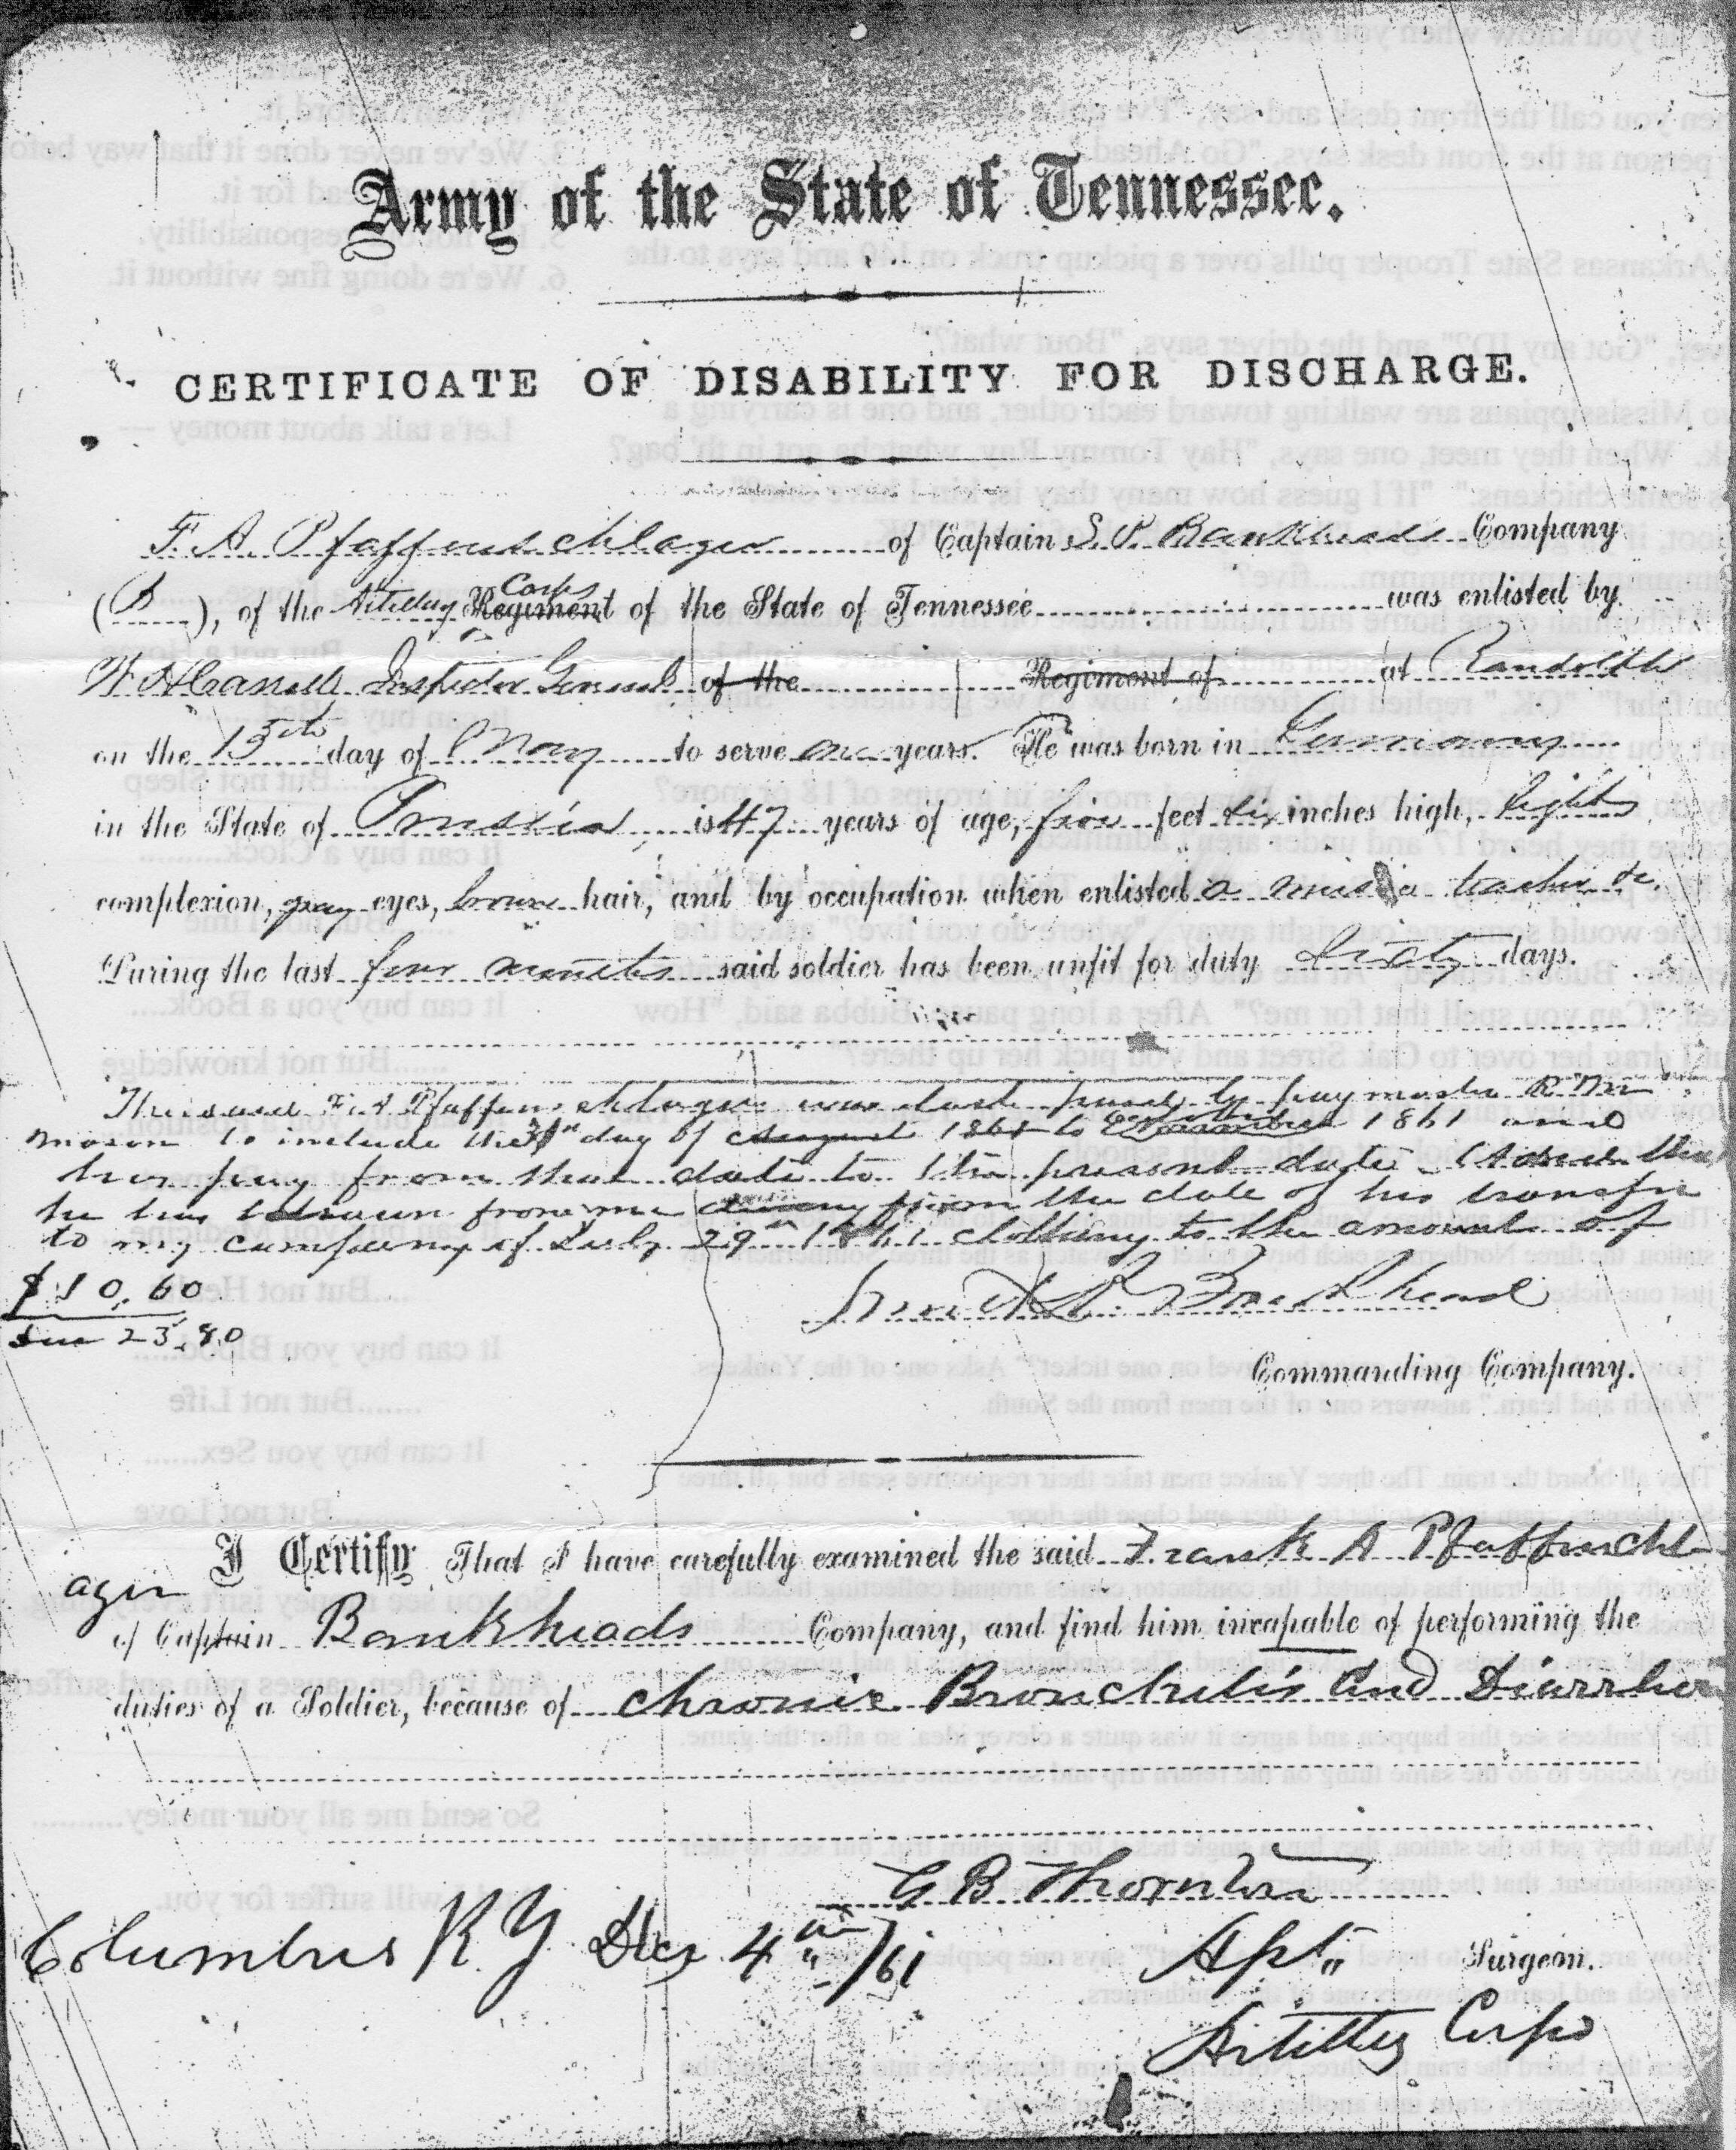 Army of the State of Tennessee.
CERTIFICATE OF DISABILITY FOR DISCHARGE.
F. A. Pfaffenschlager of Captain Bankheads Company
(B), of the Artillery Corps Regiment of the State of Tennessee was enlisted by
Inspector General of the Regiment of at Randolph
on the 15th day of May to serve one years. He was born in Germany
in the State of Prussia, is 47 years of age, five feet six inches high, light
complexion, gray eyes, brown hair, and by occupation when enlisted a music teacher &c.
During the last four months said soldier has been unfit for duty Sixty days.
The said F. A Pfaffenschlager was last paid by paymaster
Mason to include the 31st day of August 1861 to 1861 and
has pay from that date to the present date
he has drawn from me from the date of his transfer
to my company of July 29th 1861 clothing to the amount of
$10.60
due 23.80
Bankhead
Commanding Company.
I Certify That I have carefully examined the said Frank A Pfaffenschl
ager
of Captain Bankheads Company, and find him incapable of performing the
duties of a Soldier, because of chronic Bronchitis and Diarrhoea
G B Thornton
Columbus KY Dec 4th /61
Apt. Surgeon.
Artillery Corps